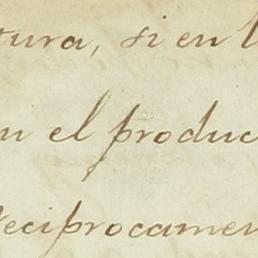 tura, si en l
n el produc
Reciprocamen